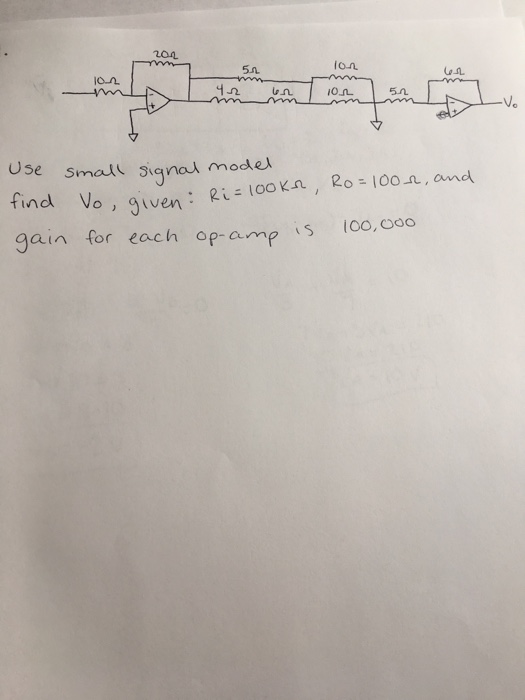 20Ω
5Ω 10Ω 6Ω
10Ω 4Ω 6Ω 10Ω 5Ω
- + - + Vo
Use small signal model
find Vo, given: Ri = 100KΩ, Ro = 100Ω, and
gain for each op-amp is 100,000